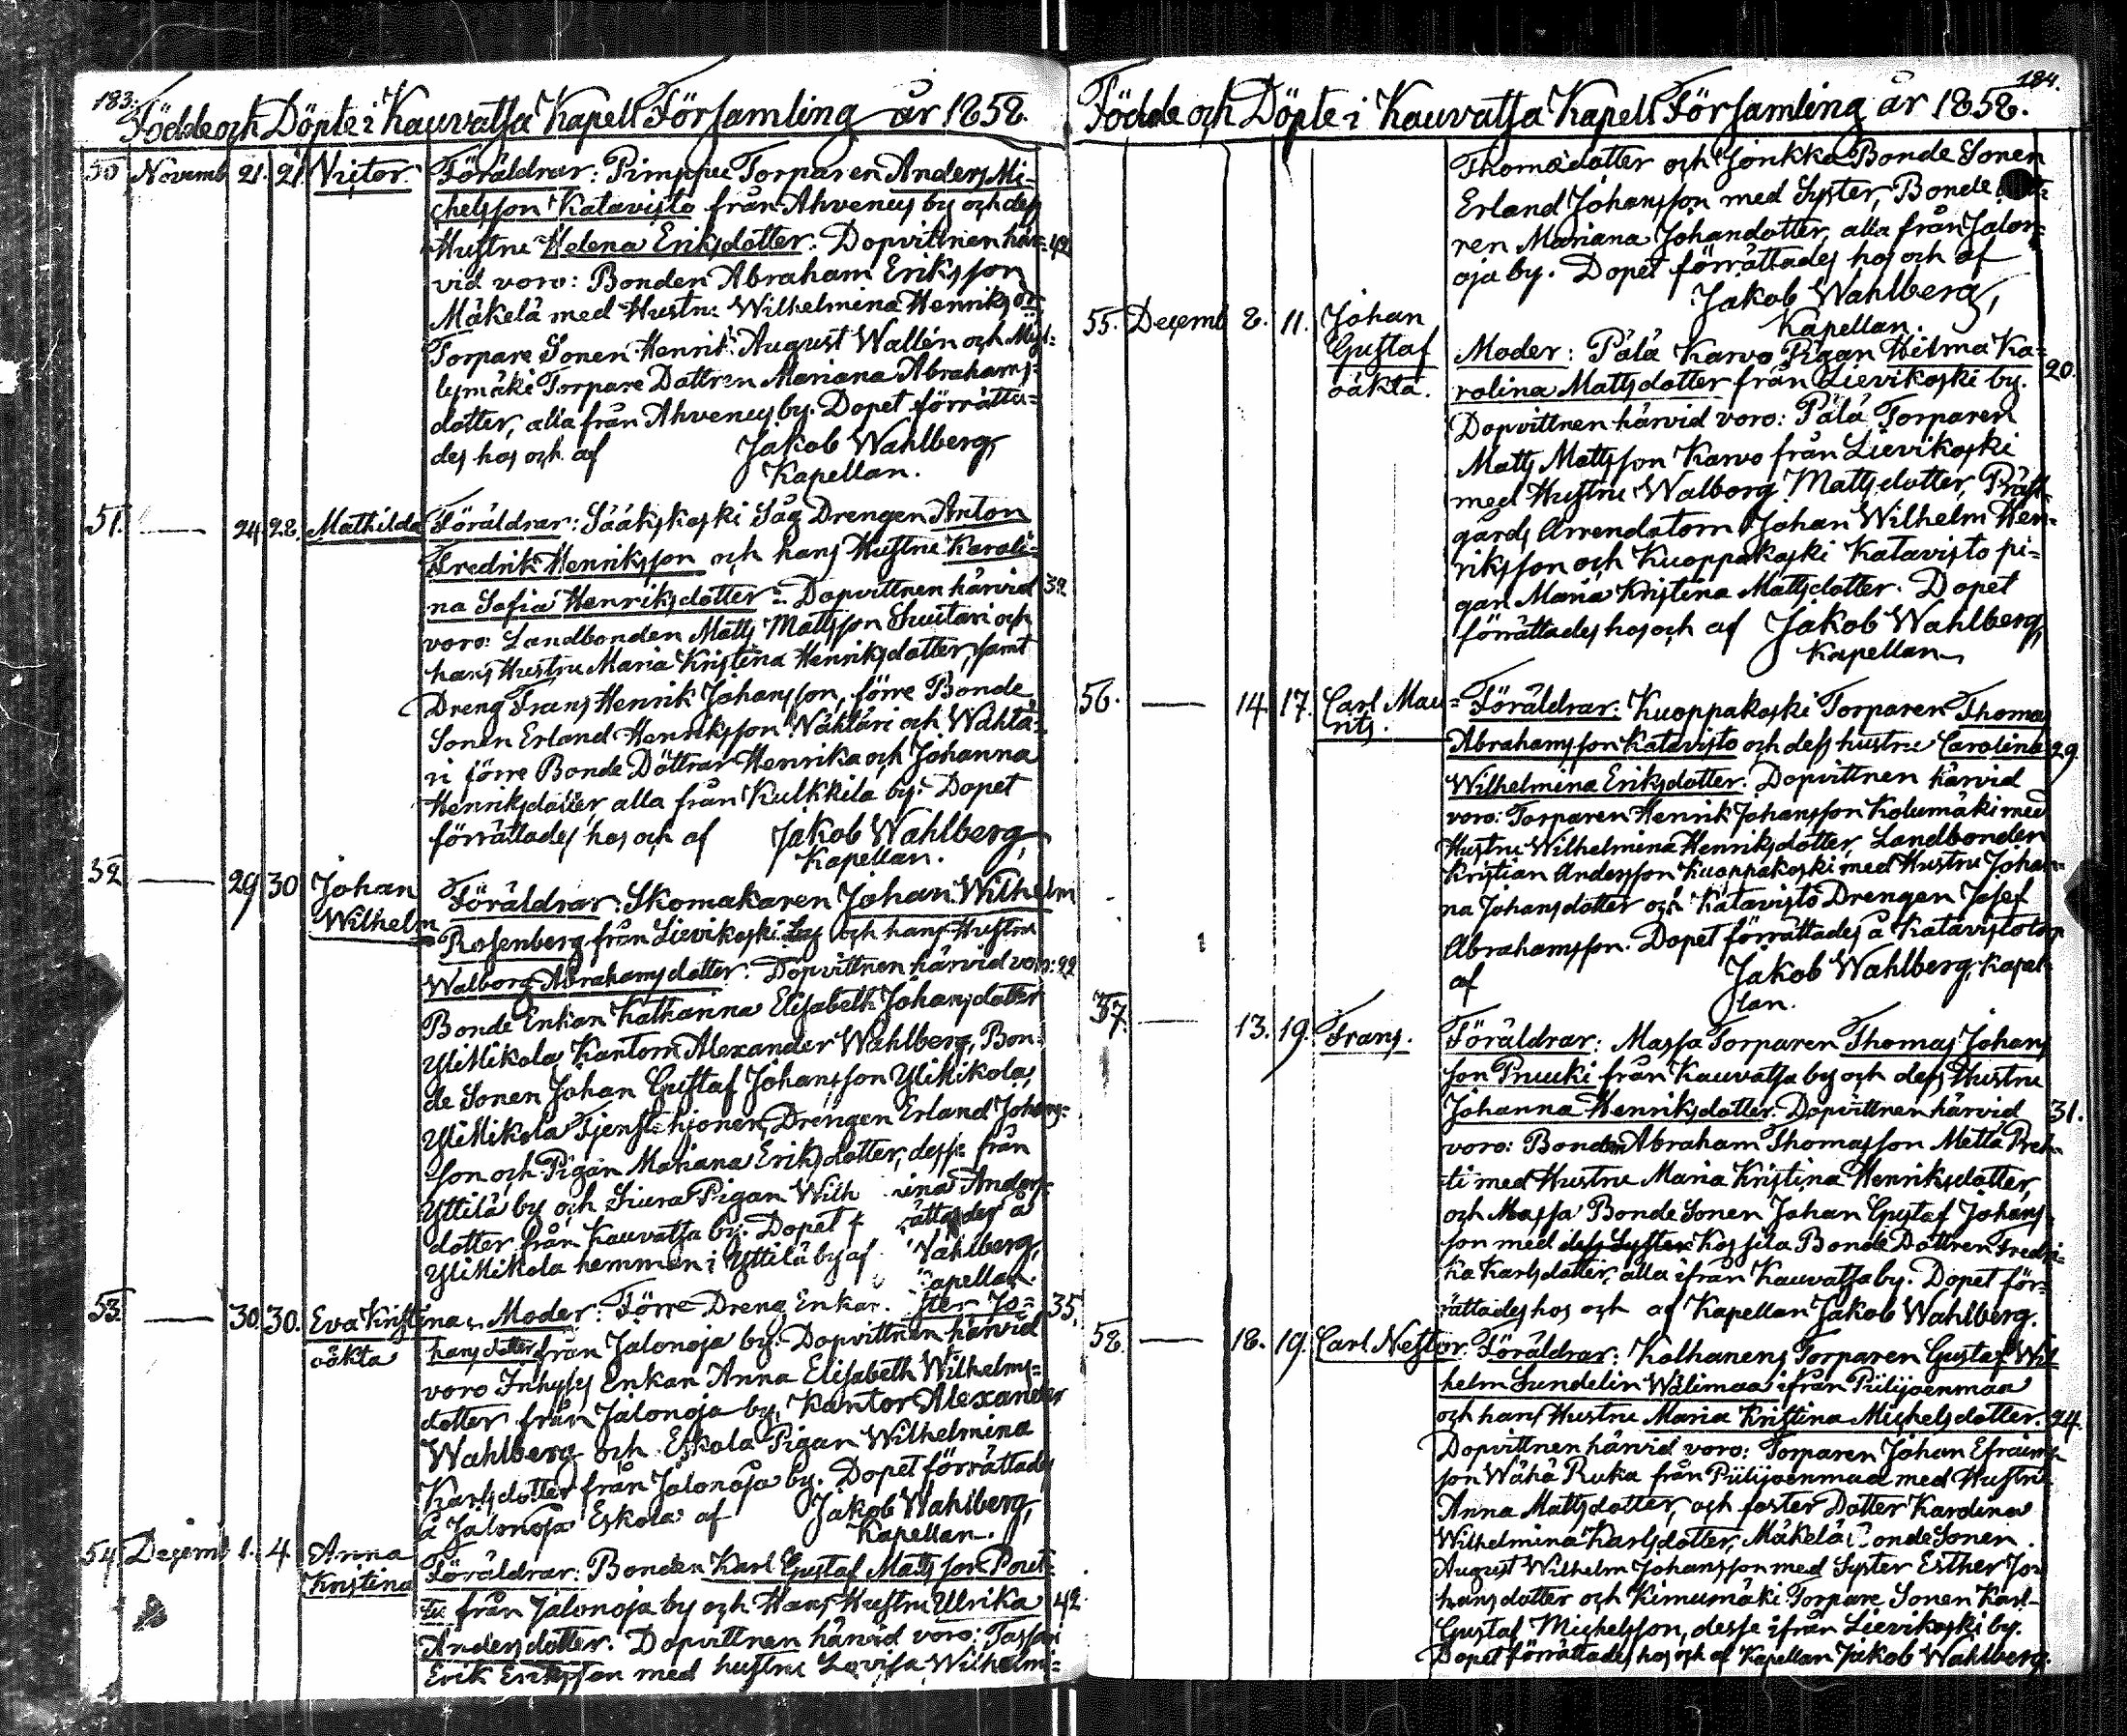 183.
Födde och Döpte i Kauvatsa Kapell Församling år 1858.
50 Novemb 21. 21. Victor. Föräldrar: Pimppu Torparen Anders Mi-
chelsson Katavisto från Ahvenus by och dess
Hustru Helena Eriksdotter. Dopvittnen här- 42
vid voro: Bonden Abraham Eriksson
Mäkelä med Hustru Wilhelmina Henriksdr
Torpare Sonen Henrik August Wallén och
lymäki Torpare Dottren Mariana Abrahams-
dotter, alla från Ahvenus by. Dopet förrätta-
des hos och af Jakob Wahlberg,
Kapellan.
51. — 24. 28. Mathilda Föräldrar: Sääkskoski Såg Drengen Anton
Fredrik Henriksson och hans Hustru Karoli-
na Sofia Henriksdotter. Dopvittnen härvid 32
voro: Landbonden Matts Mattsson Suutari och
hans Hustru Maria Kristina Henriksdotter, samt
Dreng Frans Henrik Johansson, förre Bonde
Sonen Erland Henriksson Wähläri och Wähla-
ri förre Bonde Döttrar Henrika och Johanna
Henriksdotter, alla från Kulkkila by. Dopet
förrättades hos och af Jakob Wahlberg,
Kapellan.
52 — 29 30 Johan
Wilhelm Föräldrar: Skomakaren Johan Wilhelm
Rosenberg från Lievikoski by och hans Hustru
Walborg Abrahamsdotter. Dopvittnen härvid voro: 22
Bonde Enkan Katharina Elisabeth Johansdotter
YliMikola, Kantorn Alexander Wahlberg, Bon-
de Sonen Johan Gustaf Johansson YliMikola,
YliMikola Tjenstehjonen, Drengen Erland Johans-
son och Pigan Mariana Eriksdotter, desse från
Yttilä by och Siura Pigan Wilh ina Anders-
dotter från Kauvatsa by. Dopet f rättades å
YliMikola hemman i Yttilä by af Wahlberg,
Kapellan.
53. — 30. 30. Eva Kristina, Moder: Förre Dreng Enkan ter Jo- 35.
oäkta hansdotter från Jalonoja by. Dopvittnen härvid
voro Inhyses Enkan Anna Elisabeth Wilhelms-
dotter från Jalonoja by, Kantor Alexander
Wahlberg och Eskola Pigan Wilhelmina
Karlsdotter från Jalonoja by. Dopet förrättades
å Jalonoja Eskola af Jakob Wahlberg,
Kapellan.
54 Decemb 1. 4. Anna
Kristina Föräldrar: Bonden Karl Gustaf Mattsson Pout-
tu från Jalonoja by och Hans Hustru Ulrika 42.
Andersdotter. Dopvittnen härvid voro: Tassari
Erik Eriksson med hustru Lovisa Wilhelmi-
184.
Födde och Döpte i Kauvatsa Kapell Församling år 1858.
Thomædotter och Jonkka Bonde Sonen
Erland Johansson med Syster, Bonde
ren Mariana Johandotter, alla från Jalon-
oja by. Dopet förrättades hos och af
Jakob Wahlberg,
Kapellan.
55. Decemb 8. 11. Johan
Gustaf
oäkta. Moder: Pälä Karvo Pigan Hilma Ka- 20.
rolina Mattsdotter från Lievikoski by.
Dopvittnen härvid voro: Pälä Torparen
Matts Mattsson Karvo från Lievikoski
med Hustru Walborg Mattsdotter, Präst-
gårds Arrendatorn Johan Wilhelm Hen-
riksson och Kuoppakoski Katavisto pi-
gan Maria Kristina Mattsdotter. Dopet
förrättades hos och af Jakob Wahlberg,
Kapellan
56. — 14. 17. Carl Mau-
rits. Föräldrar: Kuoppakoski Torparen Thomas
Abrahamsson Katavisto och dess hustru Carolina 29.
Wilhelmina Eriksdotter. Dopvittnen härvid
voro: Torparen Henrik Johansson Kolumäki med
Hustru Wilhelmina Henriksdotter, Landbonden
Kristian Andersson Kuoppakoski med Hustru Johan-
na Johansdotter och Katavisto Drengen Josef
Abrahamsson. Dopet förrättades å Katavisto torp
af Jakob Wahlberg, Kapel-
lan.
57. — 13. 19. Frans. Föräldrar: Massa Torparen Thomas Johans
son Pruuki från Kauvatsa by och dess Hustru
Johanna Henriksdotter. Dopvittnen härvid 31.
voro: Bonden Abraham Thomasson Mattä Pret-
ti med Hustru Maria Kristina Henriksdotter,
och Massa Bonde Sonen Johan Gustaf Johans-
son med dess Syster Kossila Bonde Dottren Fredri-
ka Karlsdotter, alla ifrån Kauvatsa by. Dopet för-
rättades hos och af Kapellan Jakob Wahlberg.
58. — 18. 19. Carl Nestor. Föräldrar: Kolhanens Torparen Gustaf Wil
helm Sundelin Wälimaa ifrån Piilijoenmaa
och hans Hustru Maria Kristina Michelsdotter. 24.
Dopvittnen härvid voro: Torparen Johan Efraims-
son Wähä Ruka från Piilijoenmaa med Hustru
Anna Mattsdotter, och foster Dotter Karolina
Wilhelmina Karlsdotter, Mäkelä Bonde Sonen
August Wilhelm Johansson med Syster Esther Jo-
hansdotter och Kimumäki Torpare Sonen Karl
Gustaf Michelsson, desse ifrån Lievikoski by.
Dopet förrättades hos och af Kapellan Jakob Wahlberg.